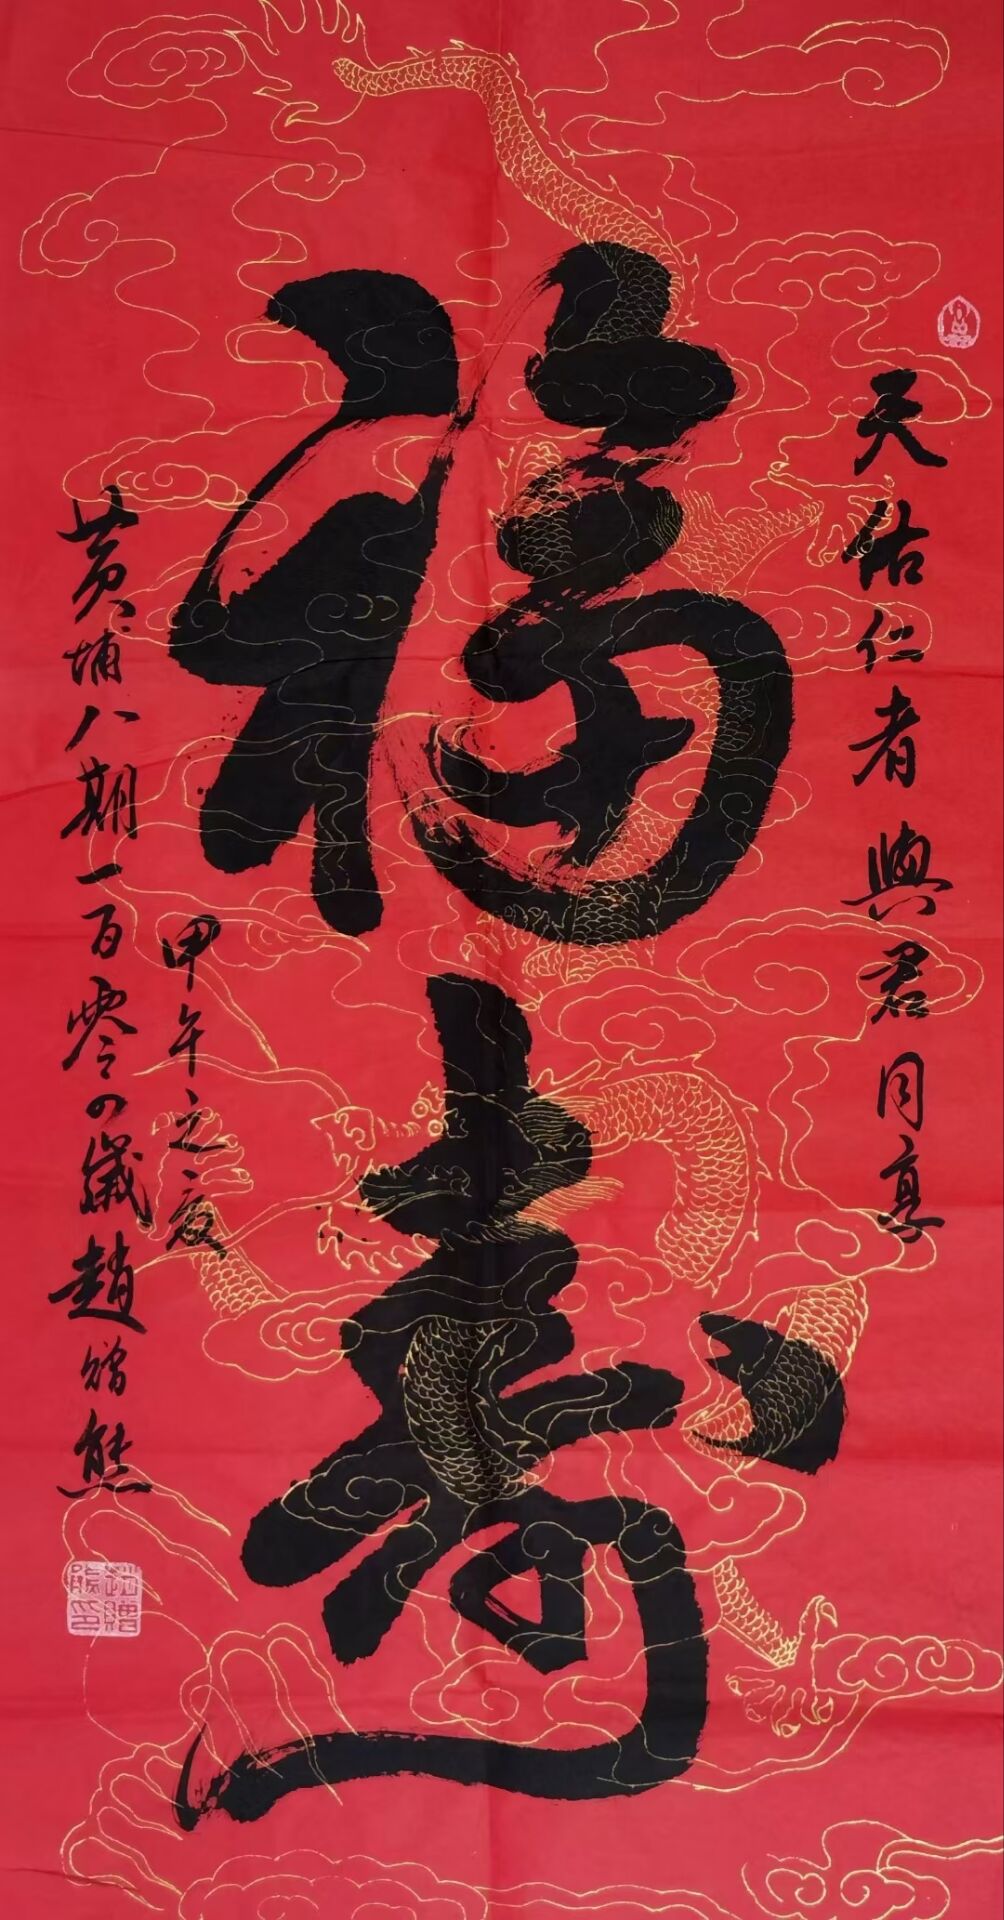 天佑仁者 與君同享
福壽
甲午之夏
黄埔八期一百零四歲趙贈熊
趙贈熊印